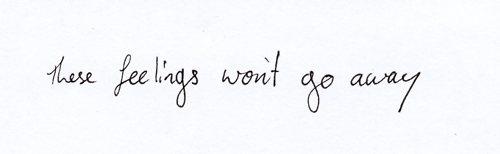 these feelings won't go away